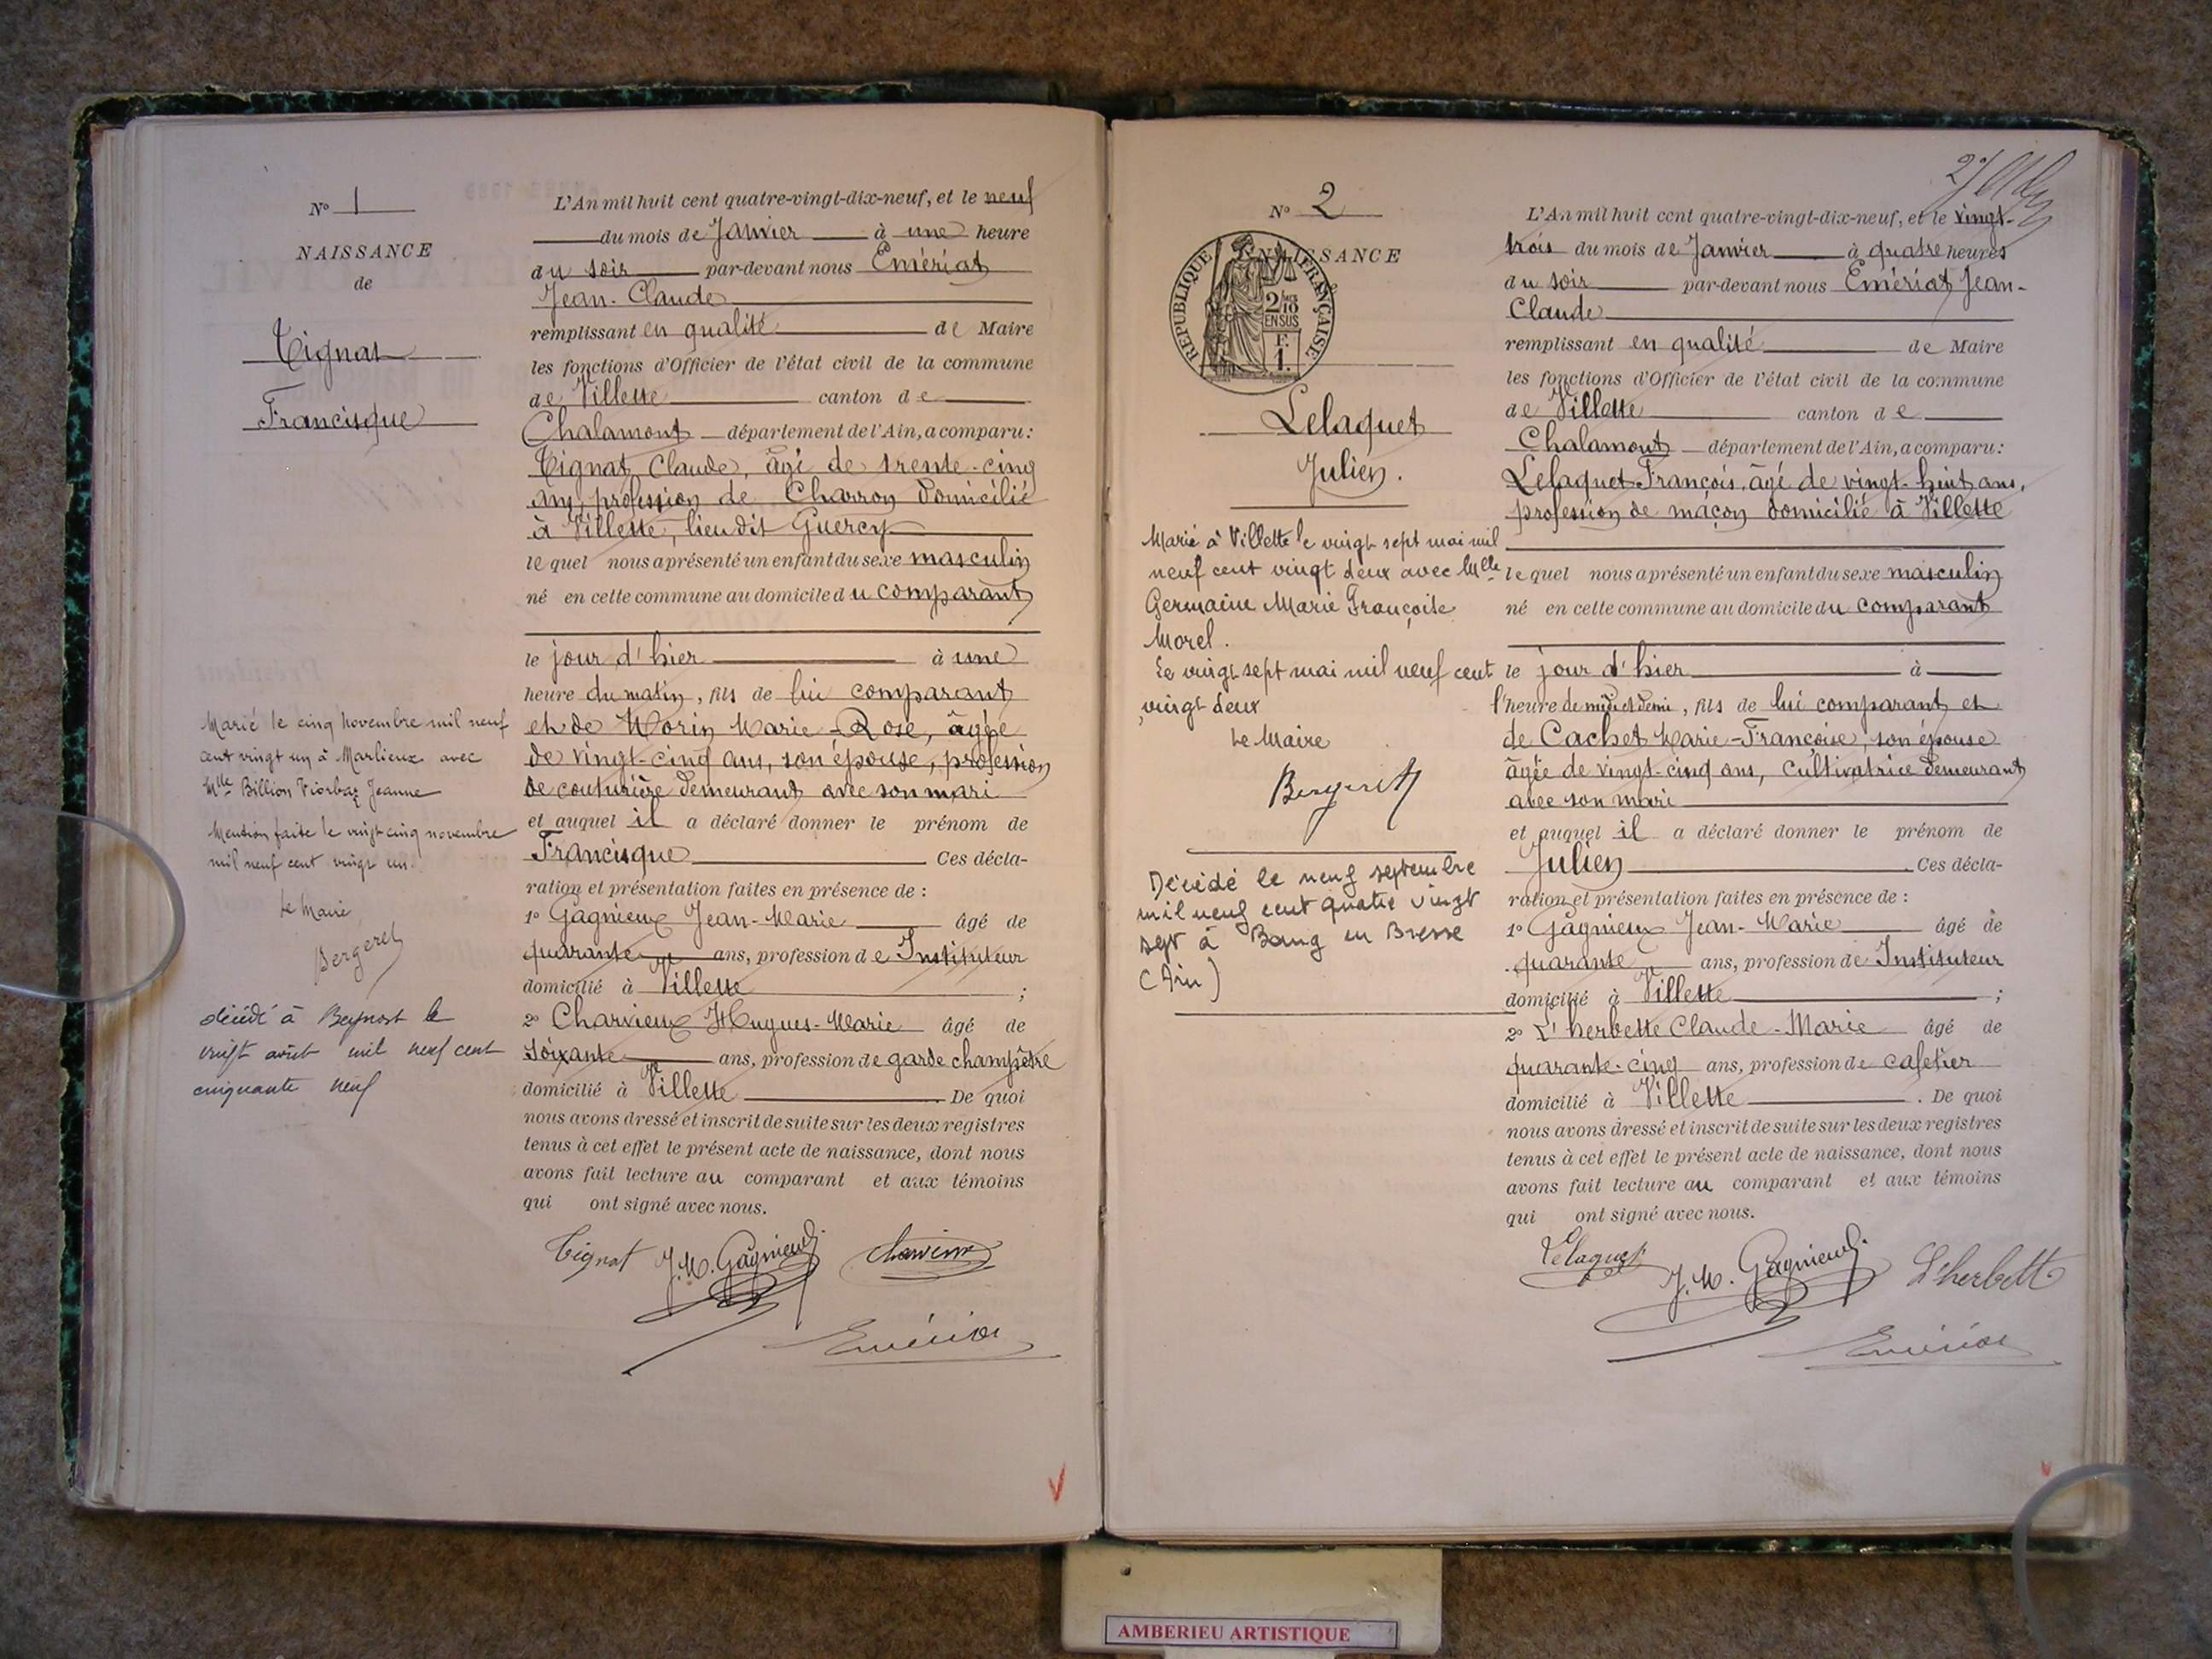 N° 1
NAISSANCE
de
Tignat
Francisque
Marié le cinq novembre mil neuf
cent vingt un à Marlieux avec
Mlle Billion Jeanne
Mention faite le vingt cinq novembre
mil neuf cent vingt un.
Le Maire
Bergeret
décédé à Beynost le
vingt août mil neuf cent
cinquante neuf
L'An mil huit cent quatre-vingt-dix-neuf, et le neuf
du mois de Janvier à une heure
du soir par-devant nous Emériat
Jean-Claude
remplissant en qualité de Maire
les fonctions d'Officier de l'état civil de la commune
de Villette canton de
Chalamont département de l'Ain, a comparu :
Tignat Claude, âgé de trente-cinq
ans, profession de Charron domicilié
à Villette, lieu dit Guercy
lequel nous a présenté un enfant du sexe masculin
né en cette commune au domicile du comparant
le jour d'hier à une
heure du matin, fils de lui comparant
et de Morin Marie-Rose, âgée
de vingt-cinq ans, son épouse, profession
de couturière demeurant avec son mari
et auquel il a déclaré donner le prénom de
Francisque Ces décla-
ration et présentation faites en présence de :
1° Gagnieux Jean-Marie âgé de
quarante ans, profession de Instituteur
domicilié à Villette ;
2° Charvieux Hugues-Marie âgé de
soixante ans, profession de garde champêtre
domicilié à Villette. De quoi
nous avons dressé et inscrit de suite sur les deux registres
tenus à cet effet le présent acte de naissance, dont nous
avons fait lecture au comparant et aux témoins
qui ont signé avec nous.
Tignat J.M. Gagnieux Charvieux
Emériat
N° 2
NAISSANCE
RÉPUBLIQUE FRANÇAISE
2/10
EN SUS
F.
1.
Lelaquet
Julien.
Marié à Villette le vingt sept mai mil
neuf cent vingt deux avec Mlle
Germaine Marie Françoise
Morel.
Le vingt sept mai mil neuf cent
vingt deux
Le Maire
Bergeret
Décédé le neuf septembre
mil neuf cent quatre vingt
sept à Bourg en Bresse
(Ain)
L'An mil huit cent quatre-vingt-dix-neuf, et le vingt-
trois du mois de Janvier à quatre heures
du soir par-devant nous Emériat Jean-
Claude
remplissant en qualité de Maire
les fonctions d'Officier de l'état civil de la commune
de Villette canton de
Chalamont département de l'Ain, a comparu :
Lelaquet François, âgé de vingt-huit ans,
profession de maçon domicilié à Villette
lequel nous a présenté un enfant du sexe masculin
né en cette commune au domicile du comparant
le jour d'hier à
l'heure de midi et demi, fils de lui comparant et
de Cachet Marie-Françoise, son épouse
âgée de vingt-cinq ans, Cultivatrice demeurant
avec son mari
et auquel il a déclaré donner le prénom de
Julien. Ces décla-
ration et présentation faites en présence de :
1° Gagnieux Jean-Marie âgé de
quarante ans, profession de Instituteur
domicilié à Villette ;
2° L'herbette Claude-Marie âgé de
quarante-cinq ans, profession de cafetier
domicilié à Villette. De quoi
nous avons dressé et inscrit de suite sur les deux registres
tenus à cet effet le présent acte de naissance, dont nous
avons fait lecture au comparant et aux témoins
qui ont signé avec nous.
Lelaquet J.M. Gagnieux L'herbette
Emériat
AMBERIEU ARTISTIQUE